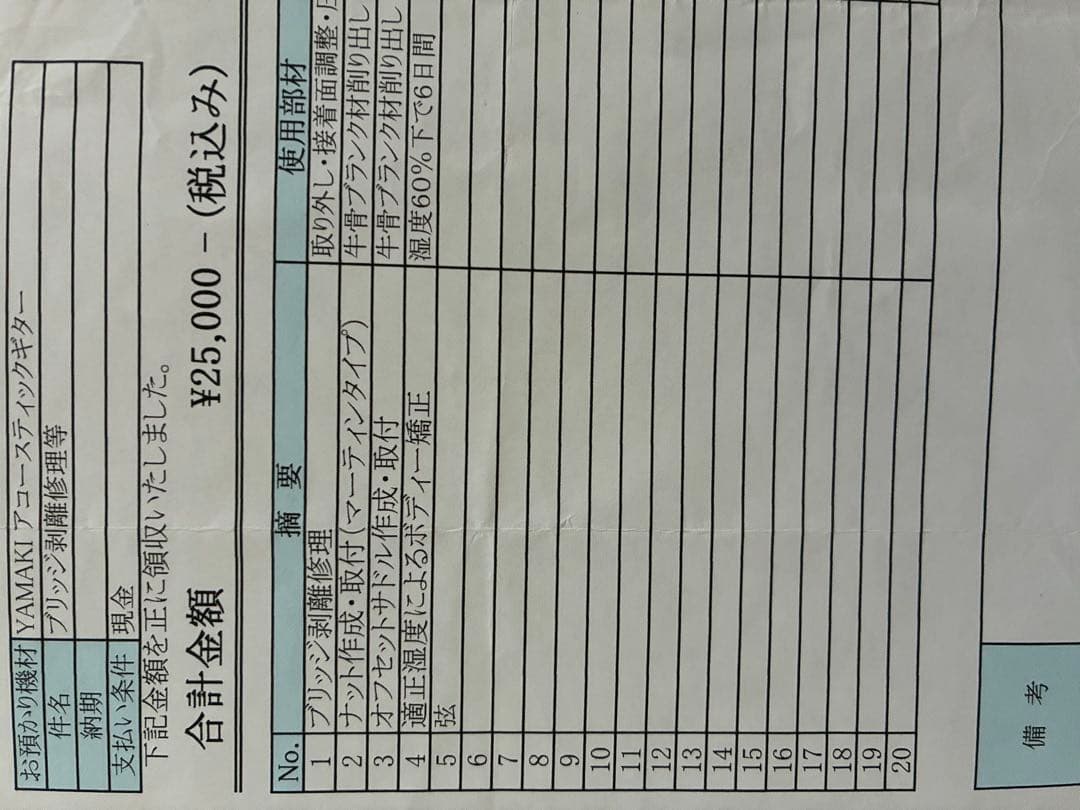 お預かり機材 YAMAKI アコースティックギター
件名 ブリッジ剥離修理等
納期
支払い条件 現金
下記金額を正に領収いたしました。
合計金額 ¥25,000－(税込み)
No. 摘要 使用部材
1 ブリッジ剥離修理 取り外し・接着面調整・
2 ナット作成・取付(マーティンタイプ) 牛骨ブランク材削り出し
3 オフセットサドル作成・取付 牛骨ブランク材削り出し
4 適正湿度によるボディー矯正 湿度60%下で6日間
5 弦
6
7
8
9
10
11
12
13
14
15
16
17
18
19
20
備考